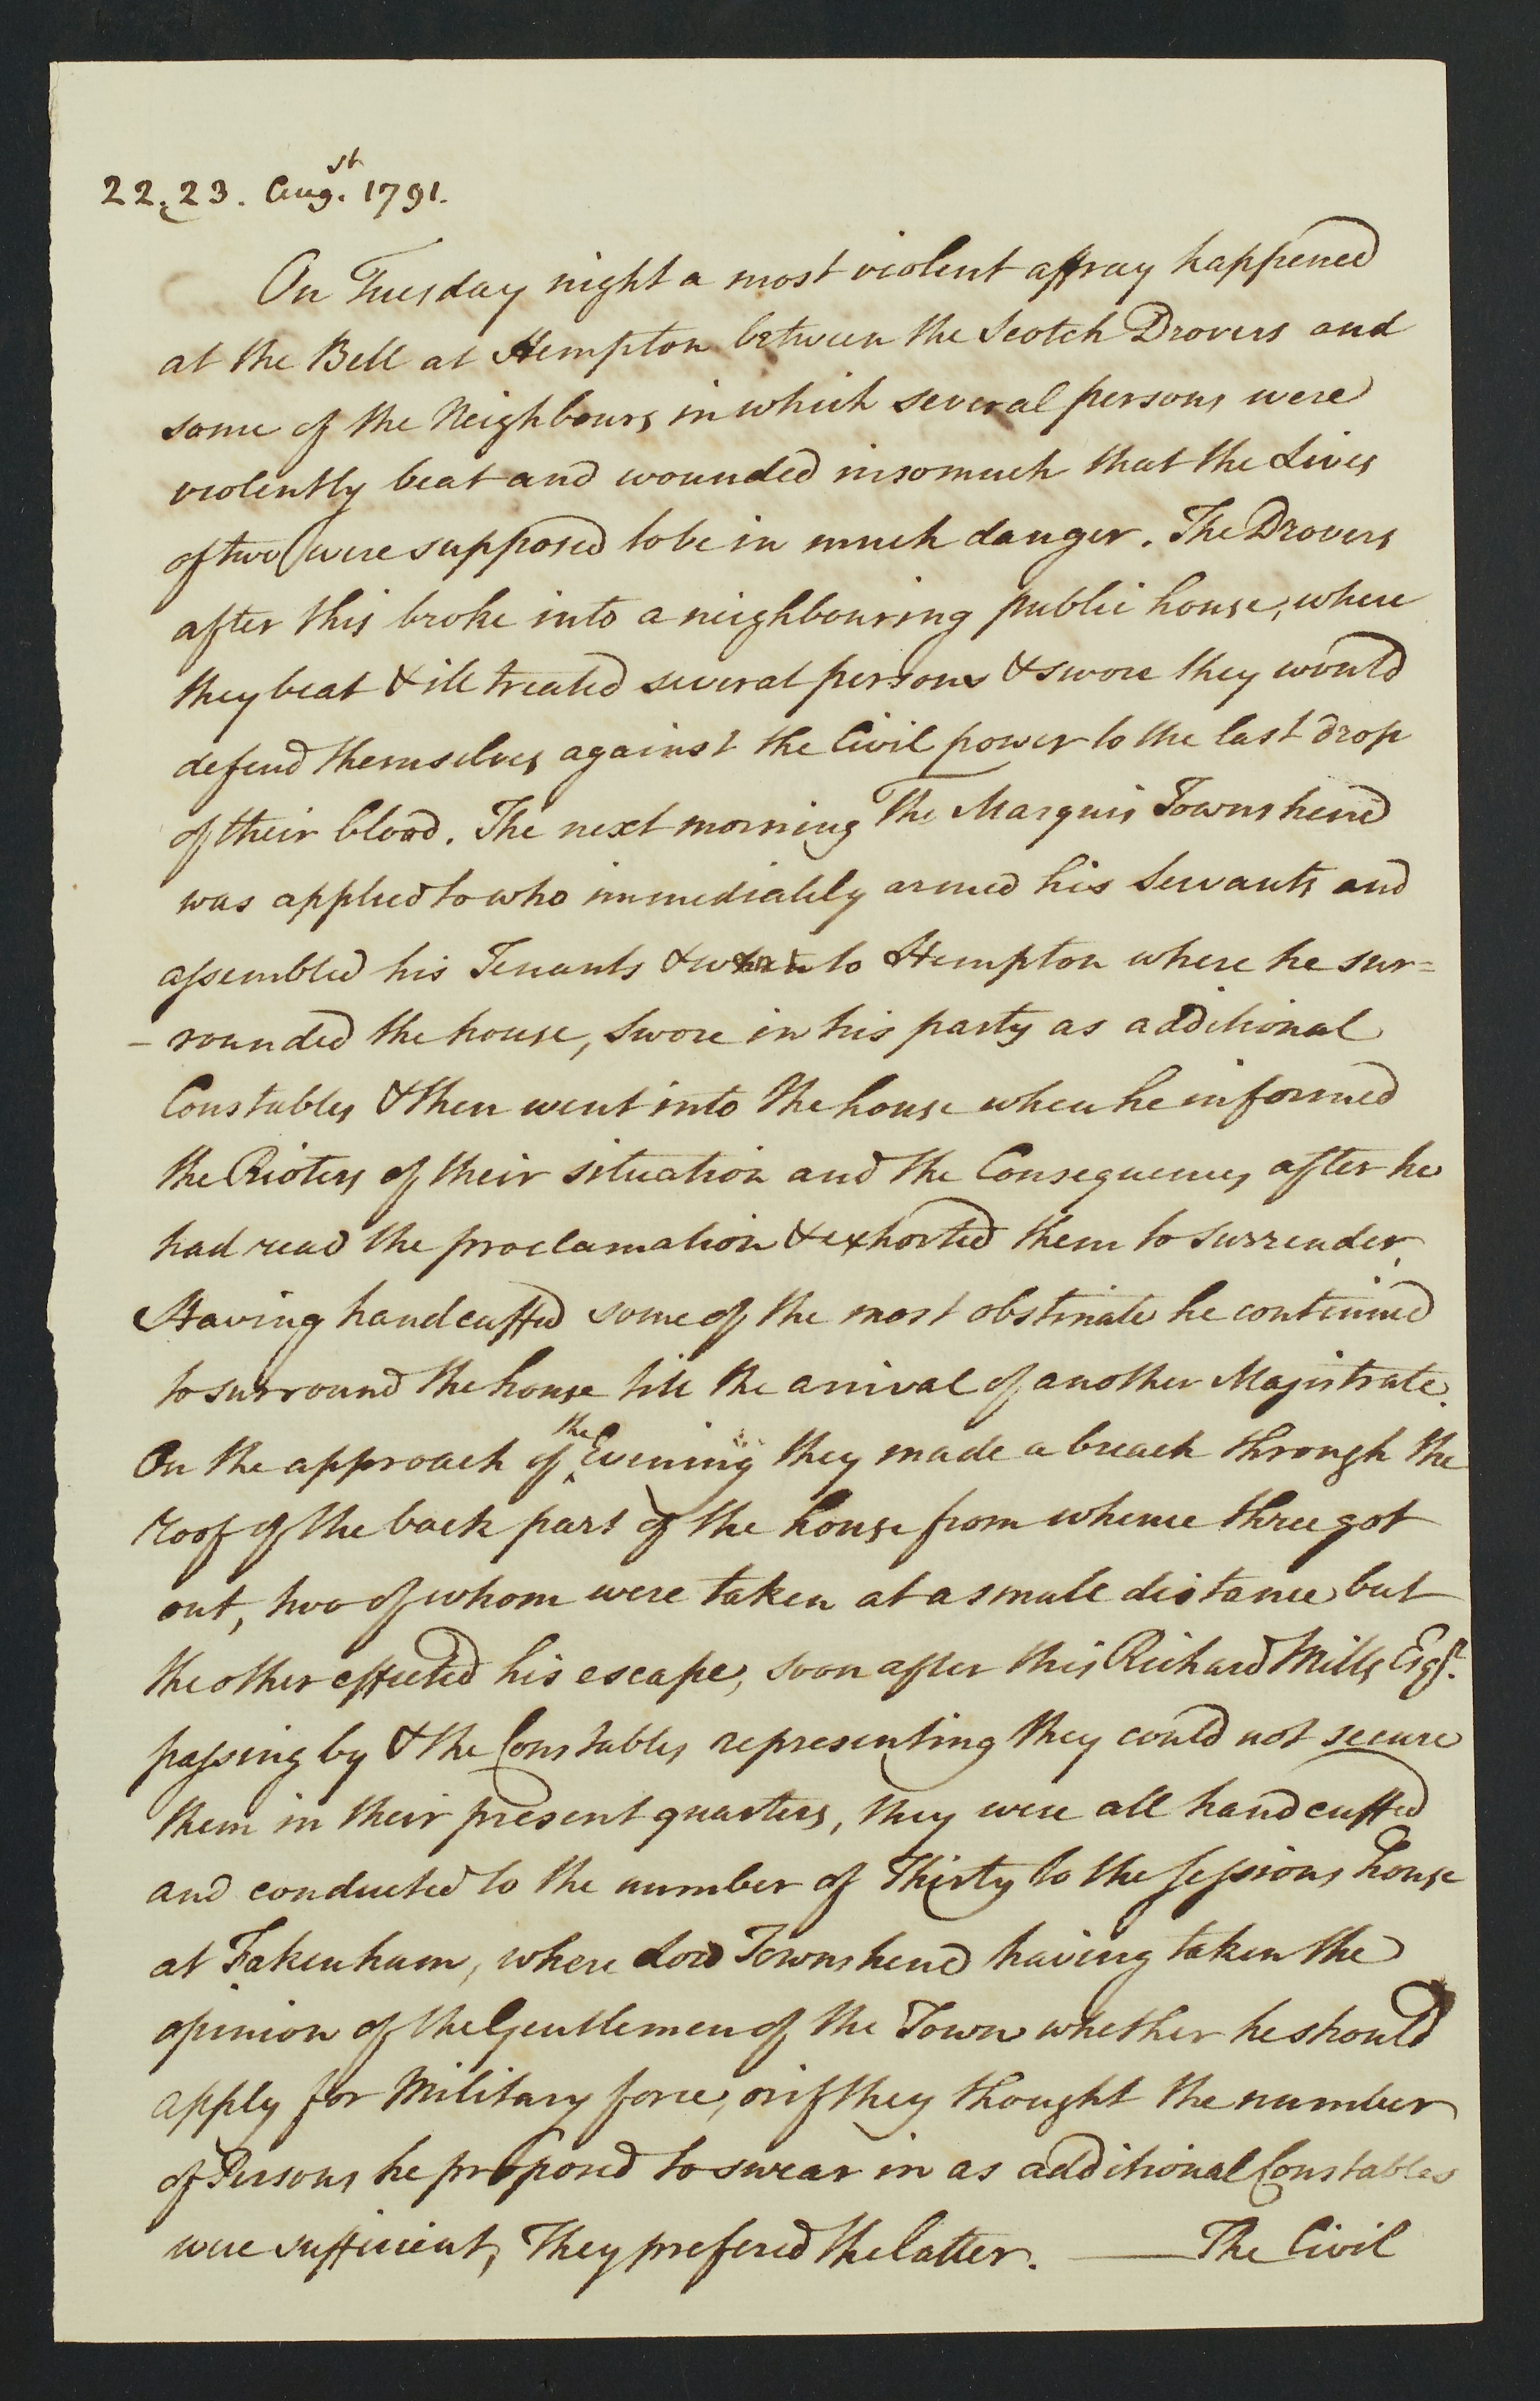 22. 23. Augst. 1791.
On Tuesday night a most violent affray happened
at the Bell at Hempton between the Scotch Drovers and
some of the Neighbours in which several persons were
violently beat and wounded insomuch that the Lives
of two were supposed to be in much danger. The Drovers
after this broke into a neighbouring public house, where
they beat & ill treated several persons & swore they would
defend themselves against the Civil power to the last drop
of their blood. The next morning The Marquis Townshend
was applied to who immediately armed his Servants and
assembled his Tenants & to Hempton where he sur=
- rounded the house, Swore in his party as additional
Constables & then went into the house when he informed
the Rioters of their situation and the Consequences after he
had read the proclamation & exhorted them to surrender.
Having handcuffed some of the most obstinate he continued
to surround the house till the arrival of another Magistrate.
On the approach of the Evening they made a breach through the
roof of the back part of the house from whence three got
out, two of whom were taken at a small distance but
the other effected his escape, soon after this Richard Mills Esqr.
passing by & the Constables representing they could not secure
them in their present quarters, they were all handcuffed
and conducted to the number of Thirty to the Sessions house
at Fakenham, where Lord Townshend having taken the
opinion of the Gentlemen of the Town whether he should
apply for Military force, or if they thought the number
of Persons he proposed to swear in as additional Constables
were sufficient, They prefered the latter. — The Civil